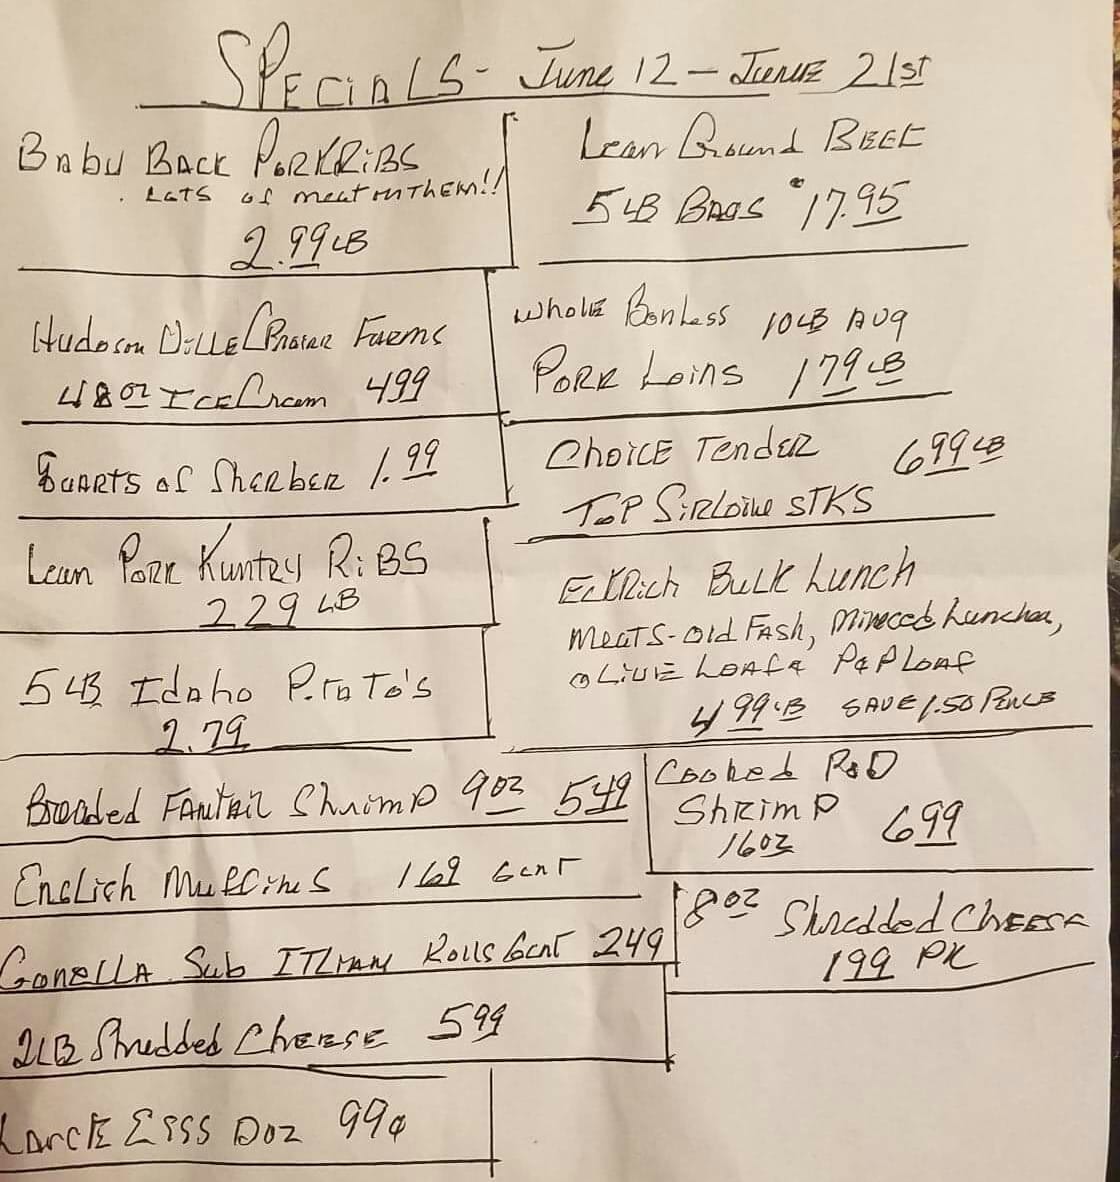 SPEciALS - June 12 - JUNE 21st
Baby BACK PORKRiBS
LOTS of meat on THEM!!
2.99 LB
Lean Ground BEEF
5 LB BAGS $17.95
Hudson Prarie Farms
48 oz ICE Cream 499
WholE Bonless 10 LB AVg
PORK Loins 179 LB
QUARTS of SherbeR 1.99
ChoicE TendeR 699 LB
ToP SiRLoine STKS
Lean PoRK KuntRy RiBS
229 LB
EckRich BulK Lunch
MeaTS - Old FASh, Minced Luncheon,
OLiVE LoAf & P&P LoAf
499 LB SAVE 1.50 Per LB
5 LB Idaho PoTaTo's
2.79
Breaded FANTAiL ShrimP 9 oz 549
Cooked P&D
ShRimP 699
16 oz
EngLich Muffins 169 6 cnT
8 oz Shredded CHEESE
199 PK
GonELLA Sub ITLIAN RoLLs 6cnT 249
2LB Shredded CHEESE 599
LArgE Eggs Doz 99¢